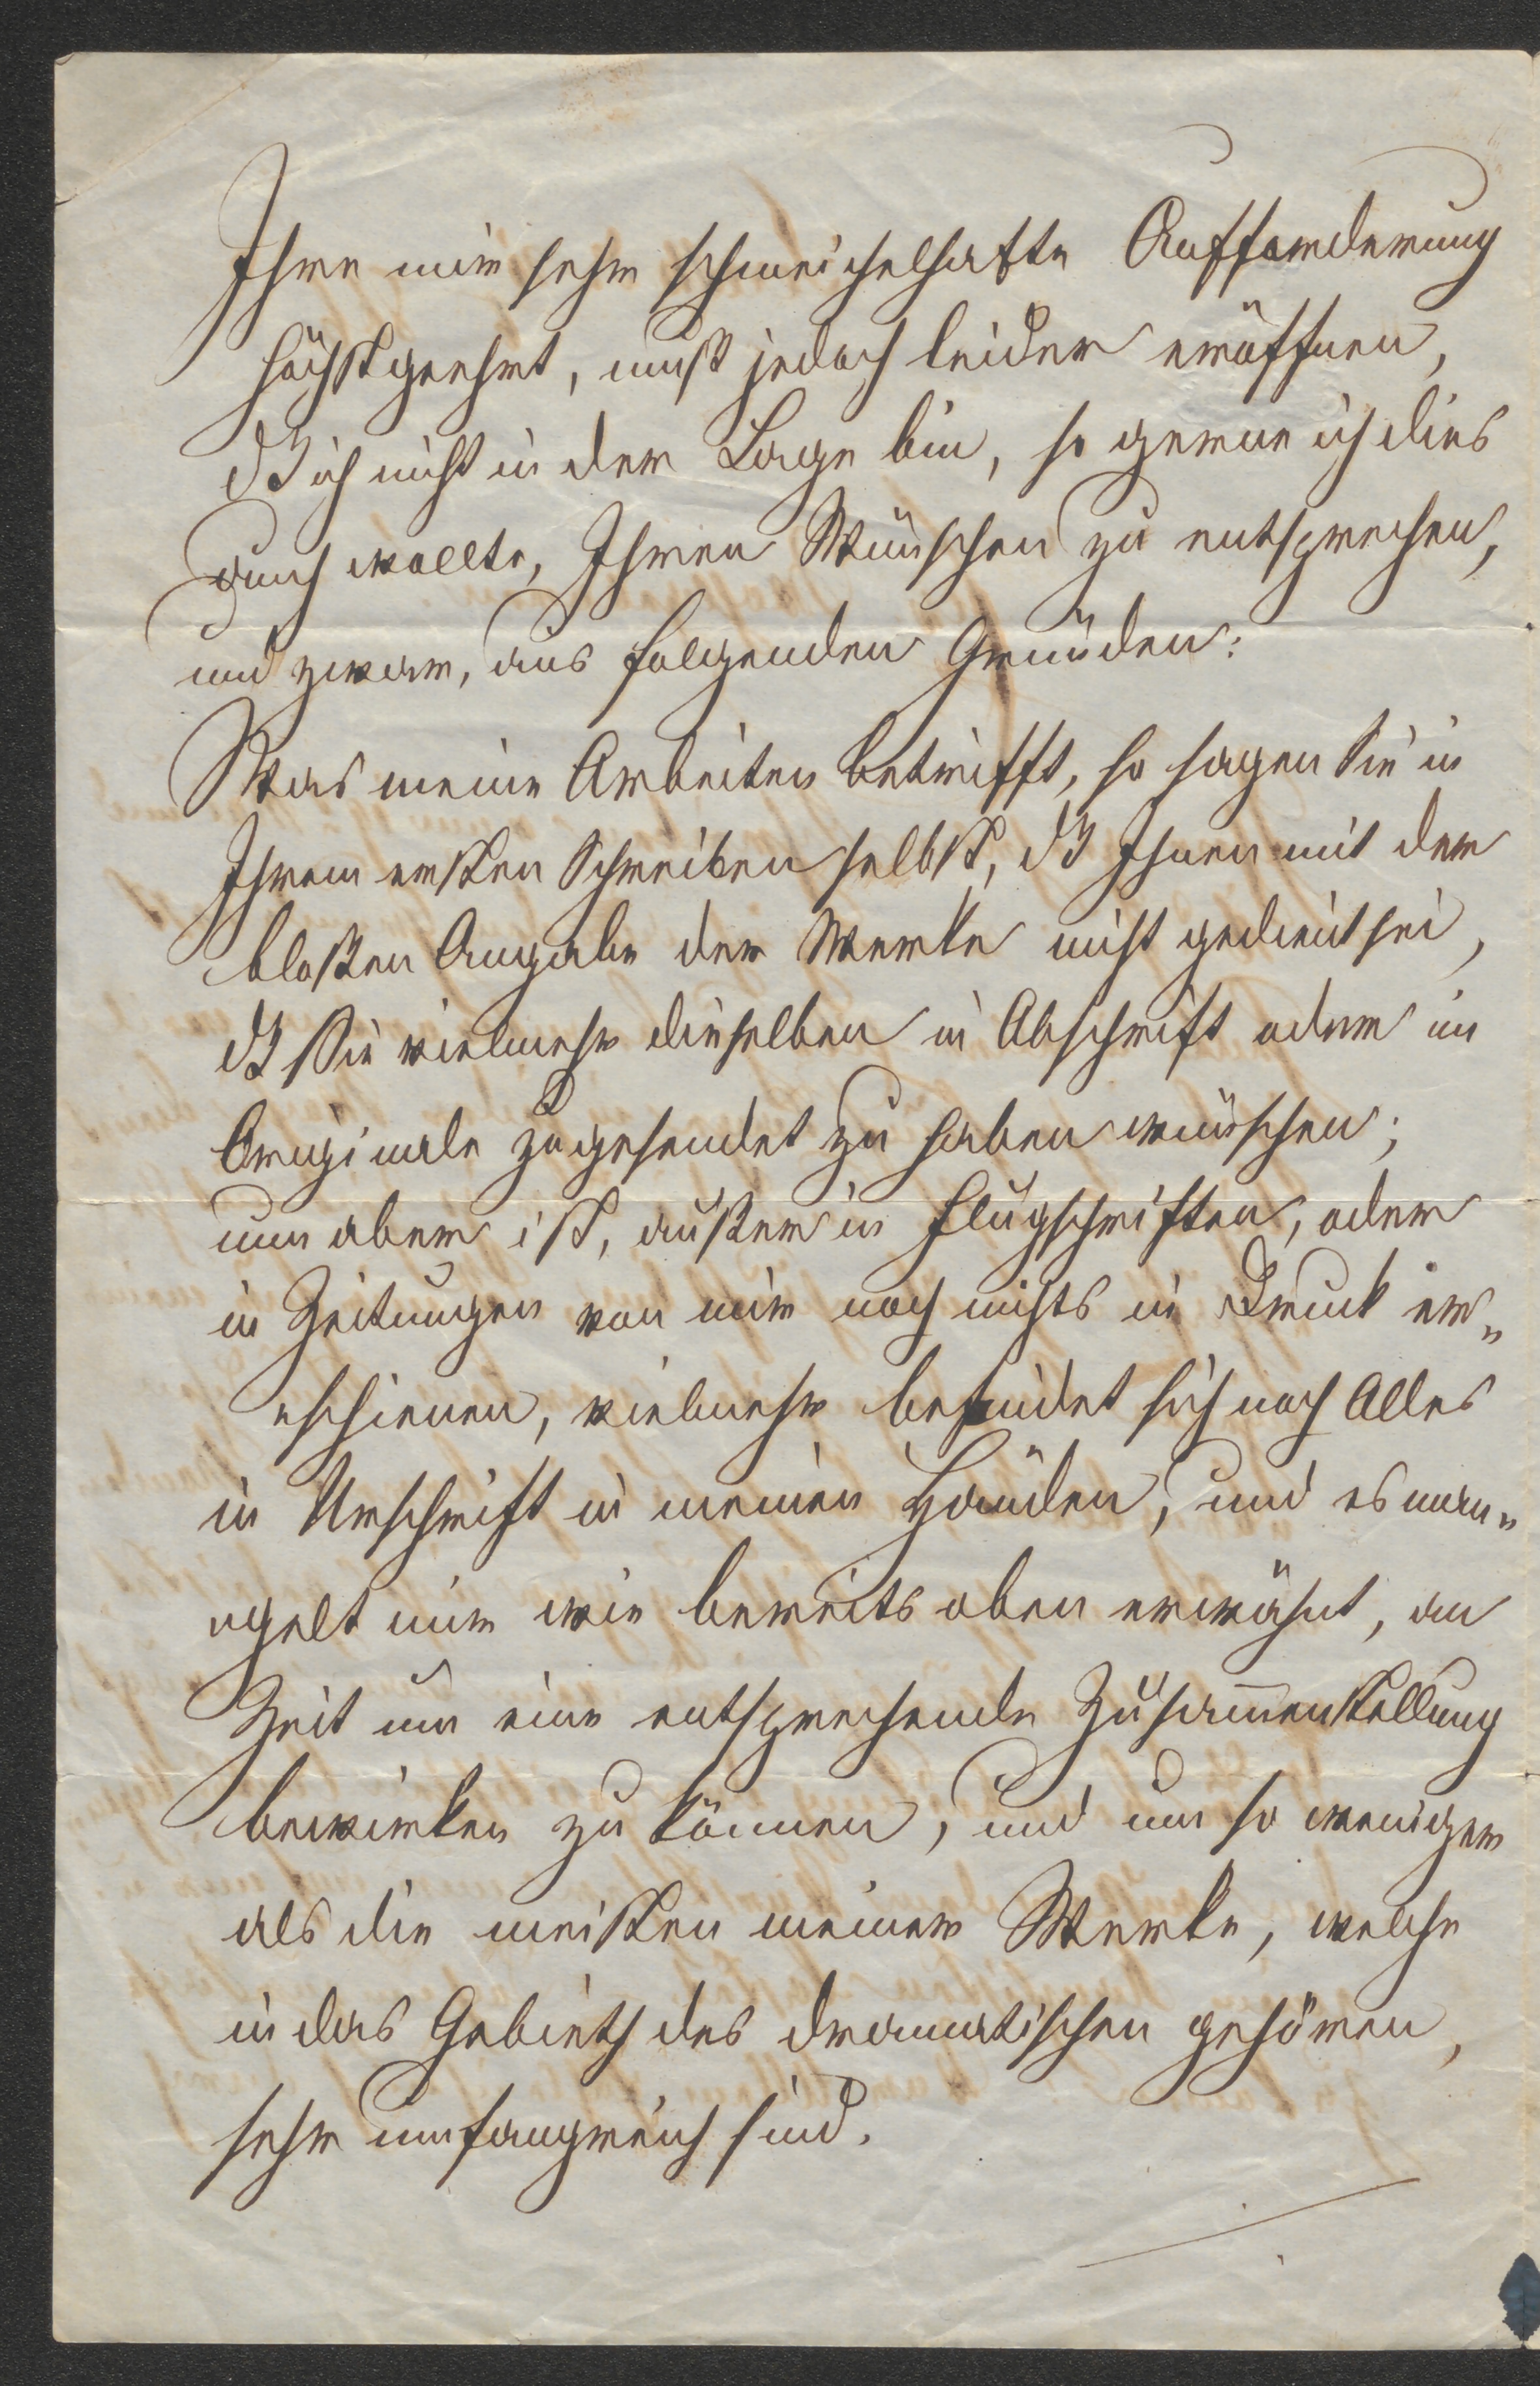 Ihre mir sehr schmeichelhafte Aufforderung
höchst geehrt, muß jedoch leider eröffnen,
dß ich nicht in der Lage bin, so gerne ich dies
auch wollte, Ihren Wünschen zu entsprechen,
und zwar, aus folgenden Gründen:
Was meine Arbeiten betrifft, so sagen Sie in
Ihrem ersten Schreiben selbst, dß Ihnen mit der
bloßen Angabe der Werke nicht gedient sei,
dß Sie vielmehr dieselben in Abschrift oder im
Originale zugesendet zu haben wünschen;
nun aber ist, außer in Flugschriften, oder
in Zeitungen von mir noch nichts in Druck er„
schienen, vielmehr befindet sich noch Alles
in Urschrift in meinen Händen, und es man„
gelt mir wie bereits oben erwähnt, an
Zeit um eine entsprechende Zusam̅enstellung
bewirken zu können, und um so weniger
als die meisten meiner Werke, welche
in das Gebieth des dramatischen gehören,
sehr umfangreich sind.